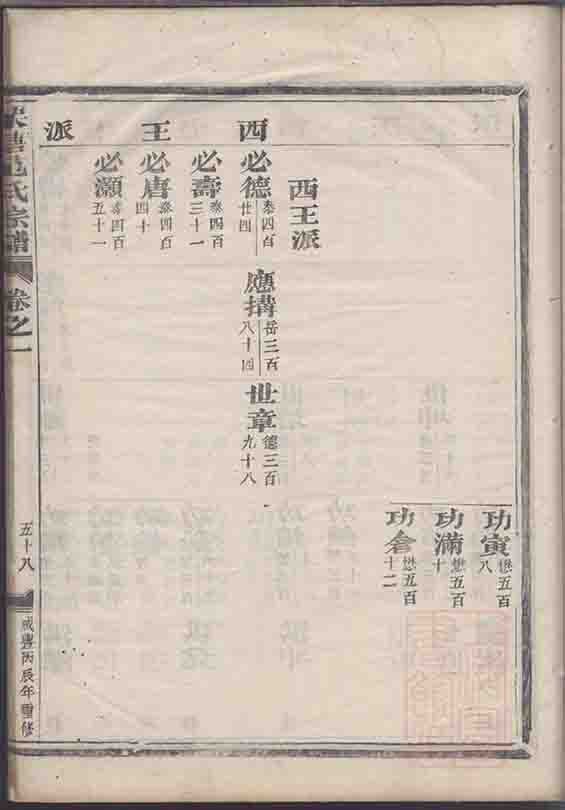 西王派
功寅 懋五百八
功滿 懋五百十
功倉 懋五百十二
西王派
必德 泰四百廿四
應搆 岳三百八十四
世章 鍾三百九十八
必壽 泰四百三十一
必唐 泰四百四十
必灝 泰四百五十一
氏宗譜
卷之一
五十八
咸豐丙辰年重修